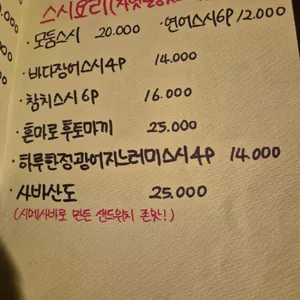 스시요리(
·모둠스시 20.000 ·연어스시6P 12.000
·바다장어스시4P 14.000
·참치스시6P 16.000
·혼마로후토마끼 25.000
·하루한정광어지느러미스시4P 14.000
·사바산도 25.000
(시메사바로 만든 샌드위치 존맛!)